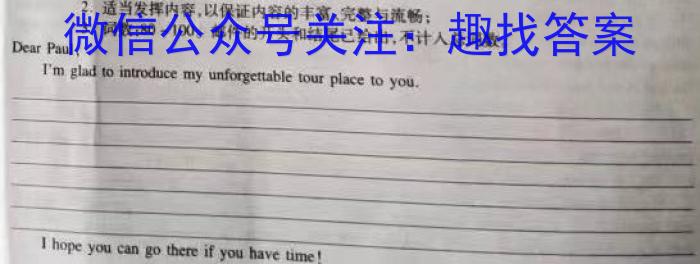 2. 适当发挥内容,以保证内容的丰富、完整与流畅;
微信公众号关注:趣找答案
Dear Paul,
I'm glad to introduce my unforgettable tour place to you.
I hope you can go there if you have time!